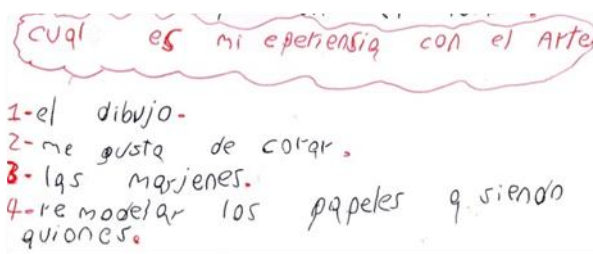 cual es mi eperiensia con el Arte
1-el dibujo.
2-me gusta de corar.
3-las marjenes.
4-remodelar los papeles a siendo
quiones.